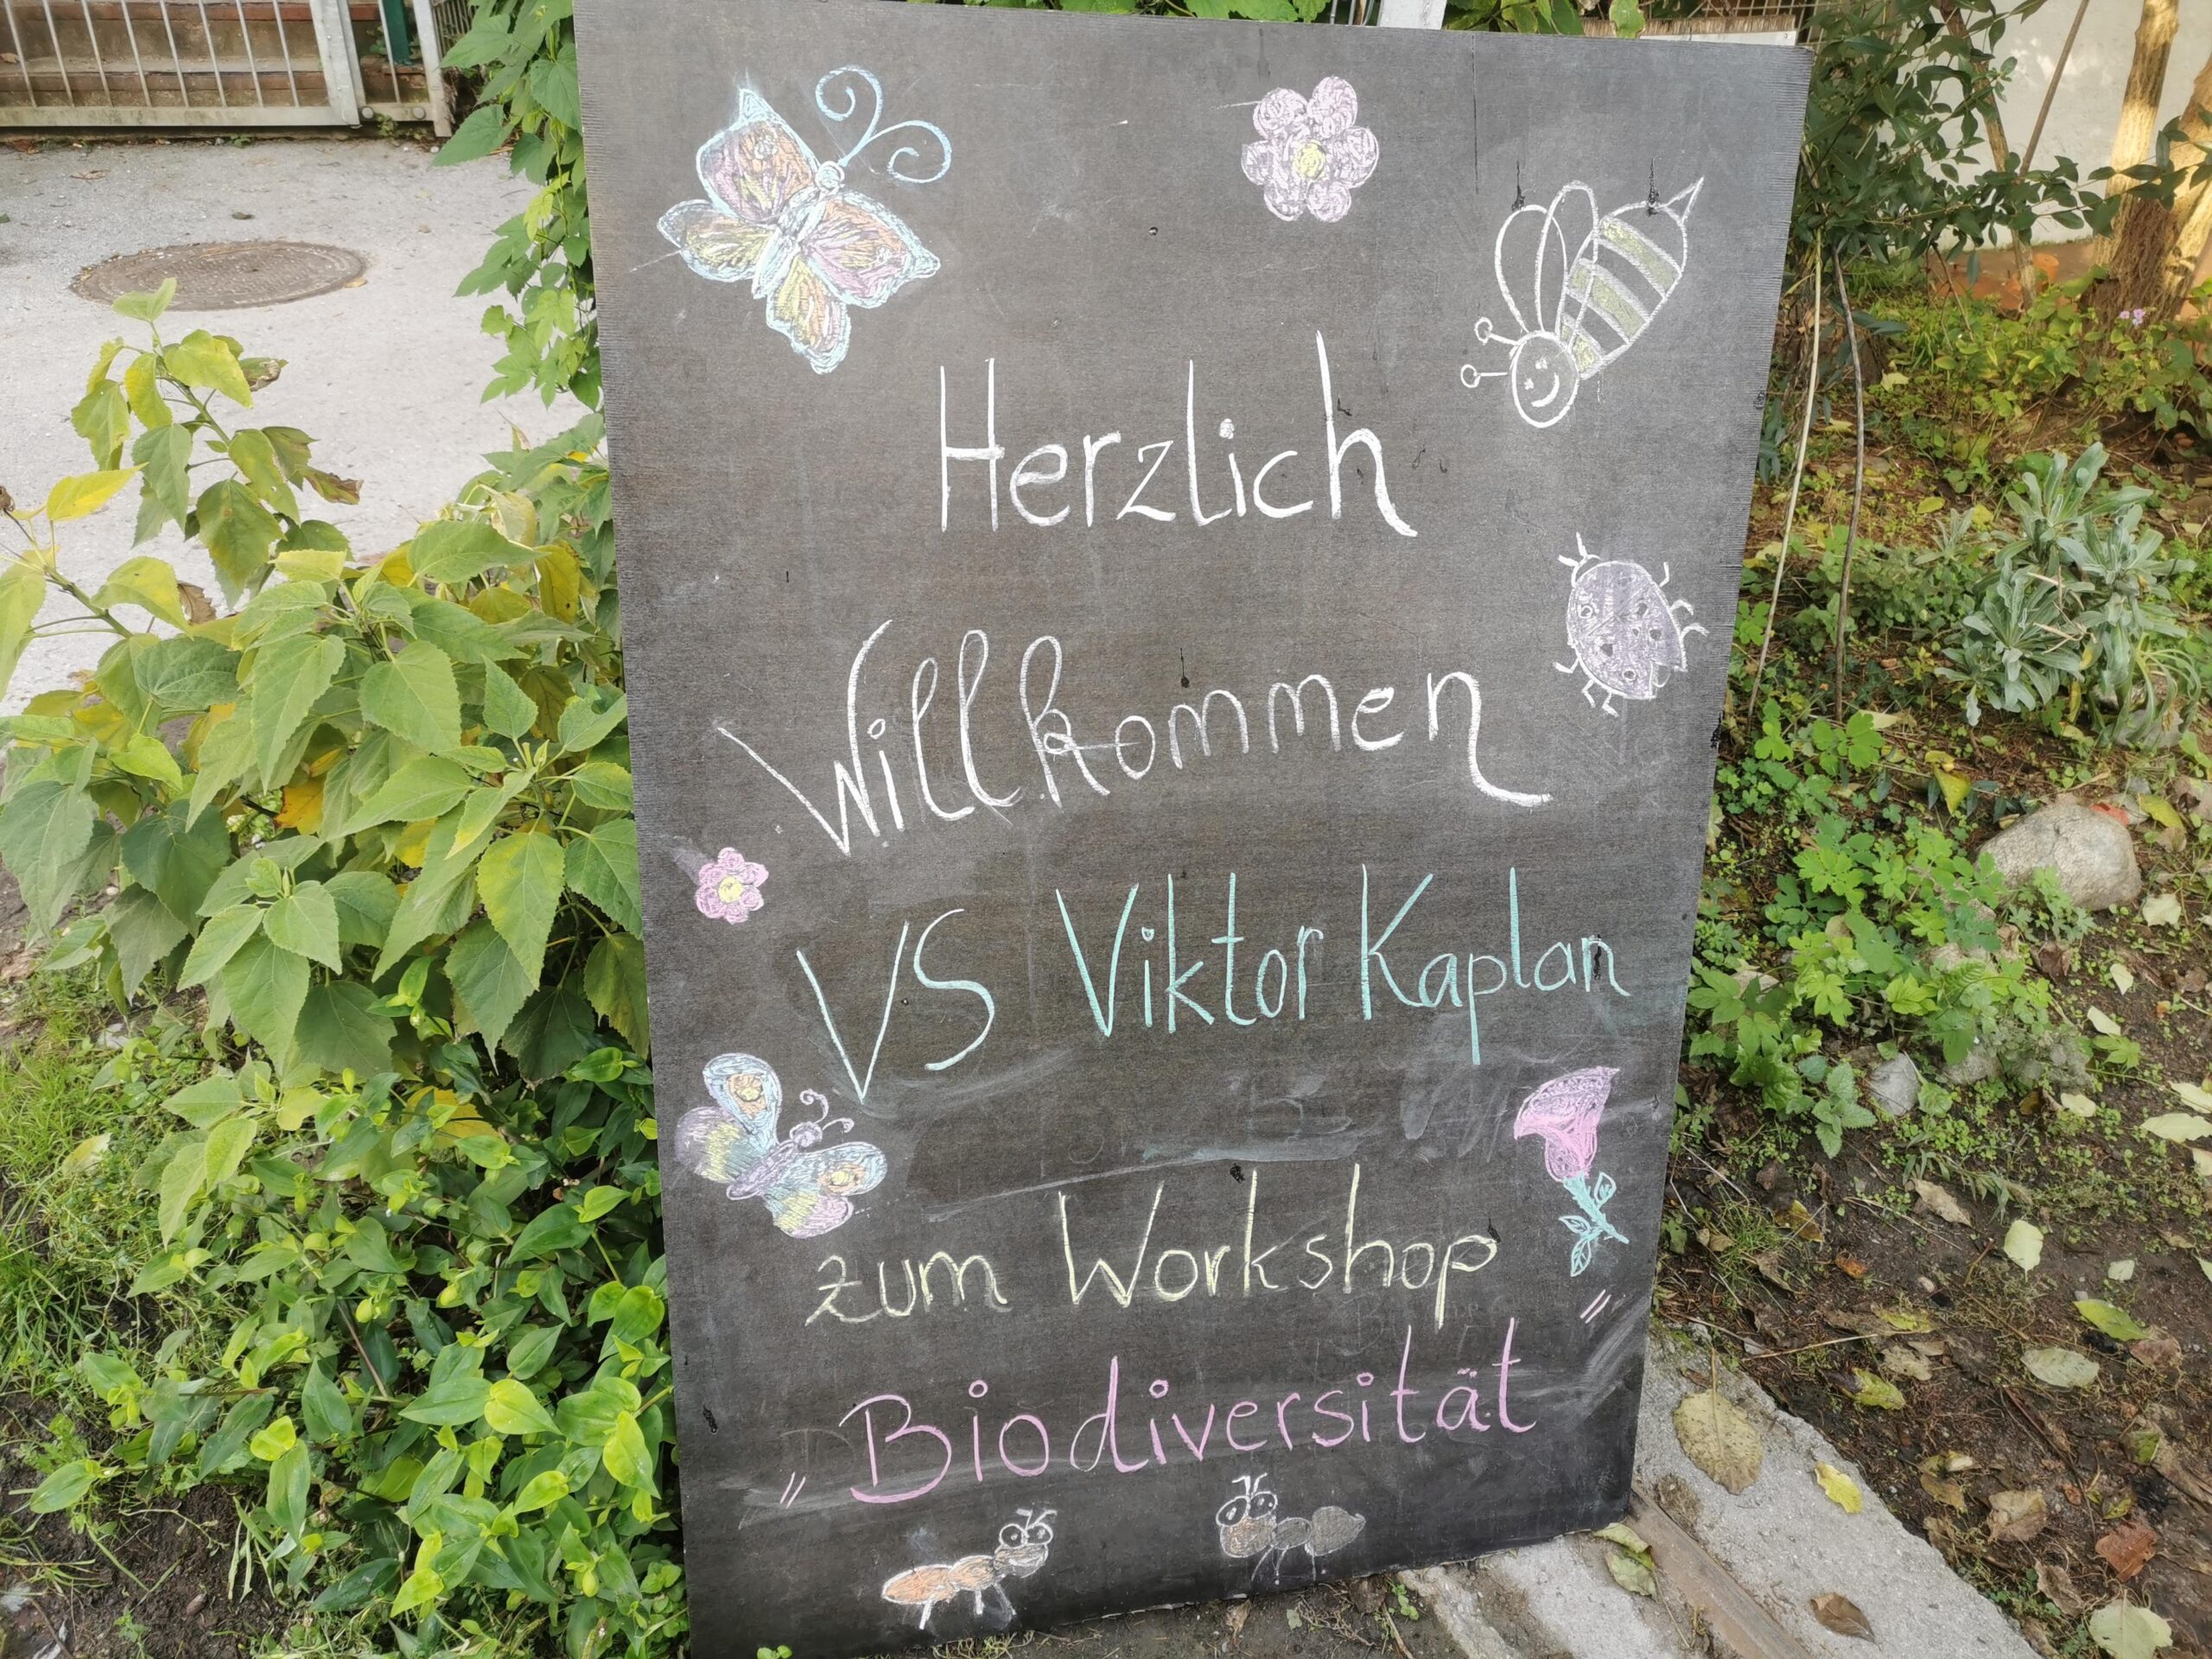 Herzlich
Willkommen
VS Viktor Kaplan
zum Workshop
"Biodiversität"